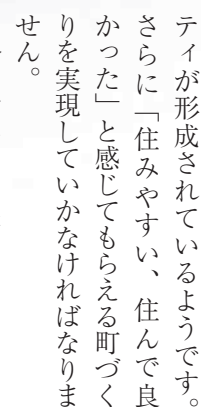 ティが形成されているようです。
さらに「住みやすい、住んで良
かった」と感じてもらえる町づく
りを実現していかなければなりま
せん。